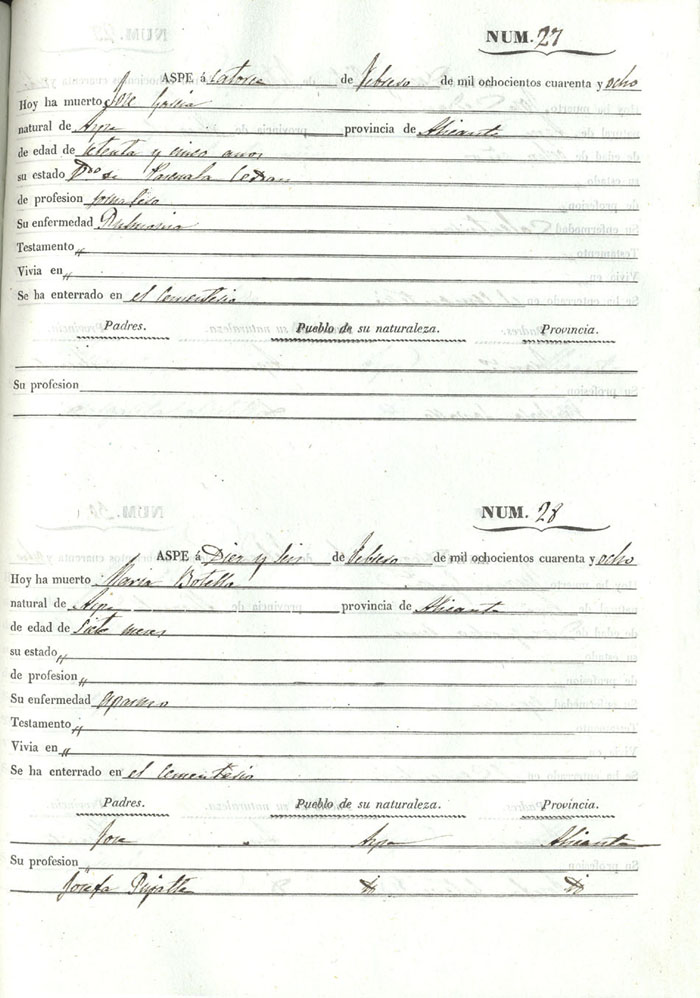 NUM. 27
ASPE á Catorce de Febrero de mil ochocientos cuarenta y ocho
Hoy ha muerto Jose Garcia
natural de Aspe provincia de Alicante
de edad de setenta y cinco años
su estado Vdo de Pascuala Cerdan
de profesion jornalero
Su enfermedad Pulmonia
Testamento „
Vivia en „
Se ha enterrado en el Cementerio
Padres. Pueblo de su naturaleza. Provincia.
Su profesion
NUM. 28
ASPE á Diez y seis de Febrero de mil ochocientos cuarenta y ocho
Hoy ha muerto Maria Botella
natural de Aspe provincia de Alicante
de edad de siete meses
su estado „
de profesion „
Su enfermedad
Testamento „
Vivia en „
Se ha enterrado en el Cementerio
Padres. Pueblo de su naturaleza. Provincia.
Jose Aspe Alicante
Su profesion
Josefa